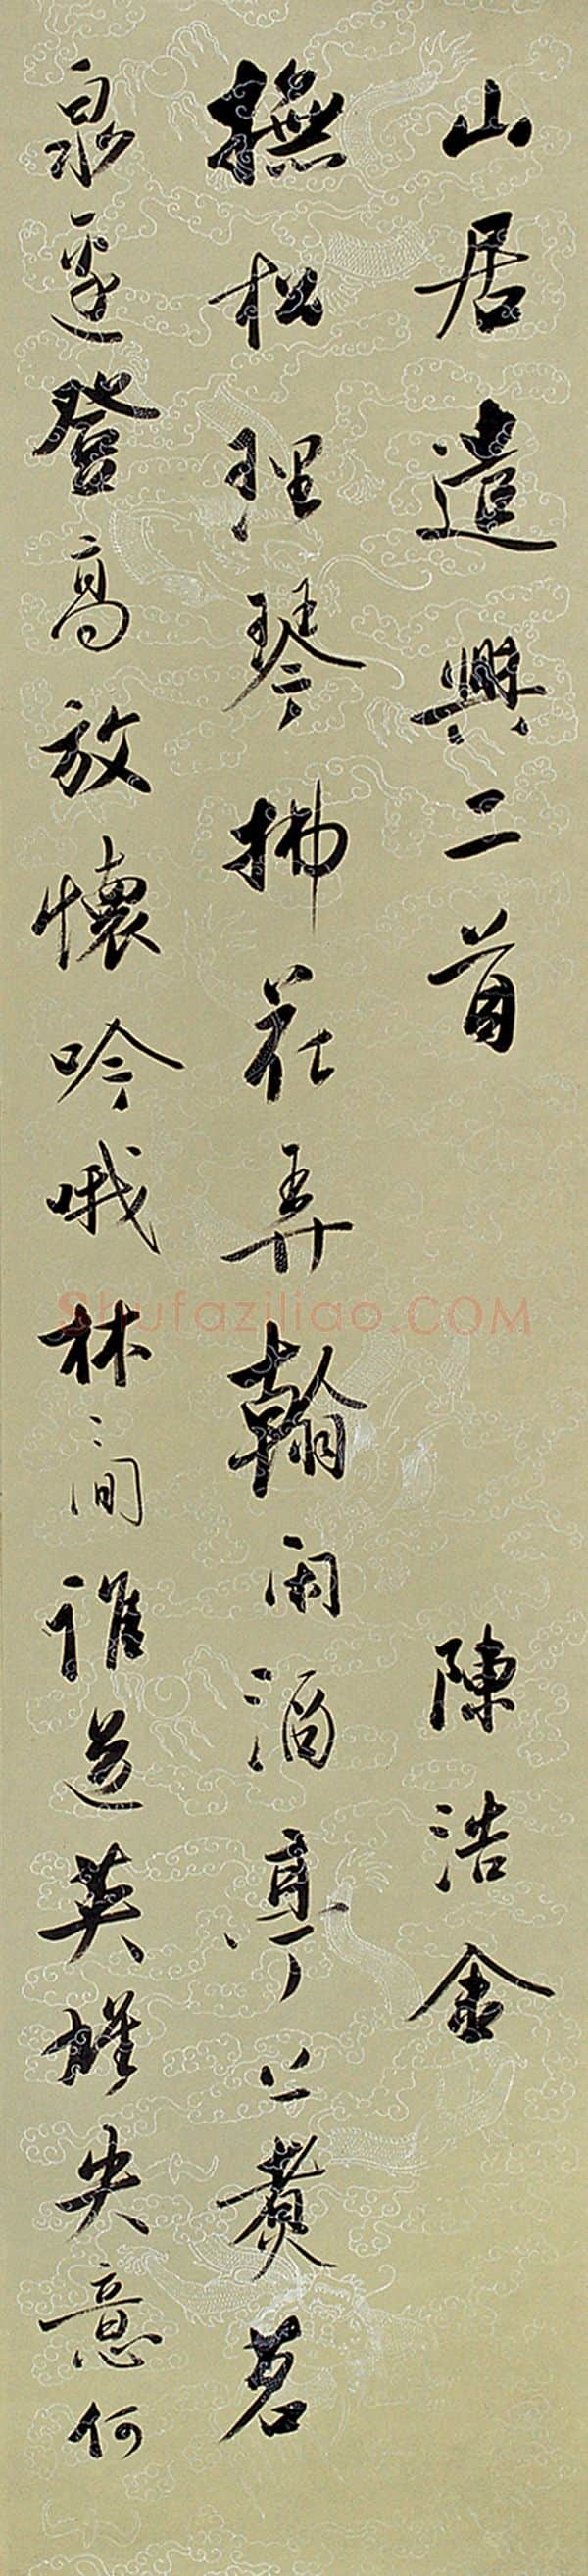 山居遣興二首 陳浩金
撫松理琴拂花弄翰閑酒亭上煮茗
泉邊登高放懷吟哦林間誰道英雄失意何
Shufaziliao.COM